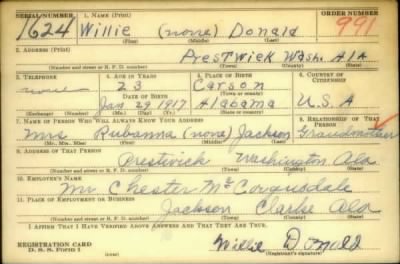 SERIAL NUMBER 1. NAME (Print) ORDER NUMBER
1624 Willie (none) Donald 991
(First) (Middle) (Last)
2. ADDRESS (Print)
Prestwick Wash. Ala
(Number and street or R. F. D. number) (Town) (County) (State)
3. TELEPHONE 4. AGE IN YEARS 5. PLACE OF BIRTH 6. COUNTRY OF CITIZENSHIP
none 23 Carson
DATE OF BIRTH (Town or county)
Jan 29 1917 Alabama U.S.A
(Exchange) (Number) (Mo.) (Day) (Yr.) (State or country)
7. NAME OF PERSON WHO WILL ALWAYS KNOW YOUR ADDRESS 8. RELATIONSHIP OF THAT PERSON
Mrs Rubanna (none) Jackson Grandmother
(Mr., Mrs., Miss) (First) (Middle) (Last)
9. ADDRESS OF THAT PERSON
Prestwick Washington Ala
(Number and street or R. F. D. number) (Town) (County) (State)
10. EMPLOYER'S NAME
Mr Chester Mc Corquodale
11. PLACE OF EMPLOYMENT OR BUSINESS
Jackson Clarke Ala
(Number and street or R. F. D. number) (Town) (County) (State)
I AFFIRM THAT I HAVE VERIFIED ABOVE ANSWERS AND THAT THEY ARE TRUE.
REGISTRATION CARD
D. S. S. Form 1
Willie Donald
(Registrant's signature)